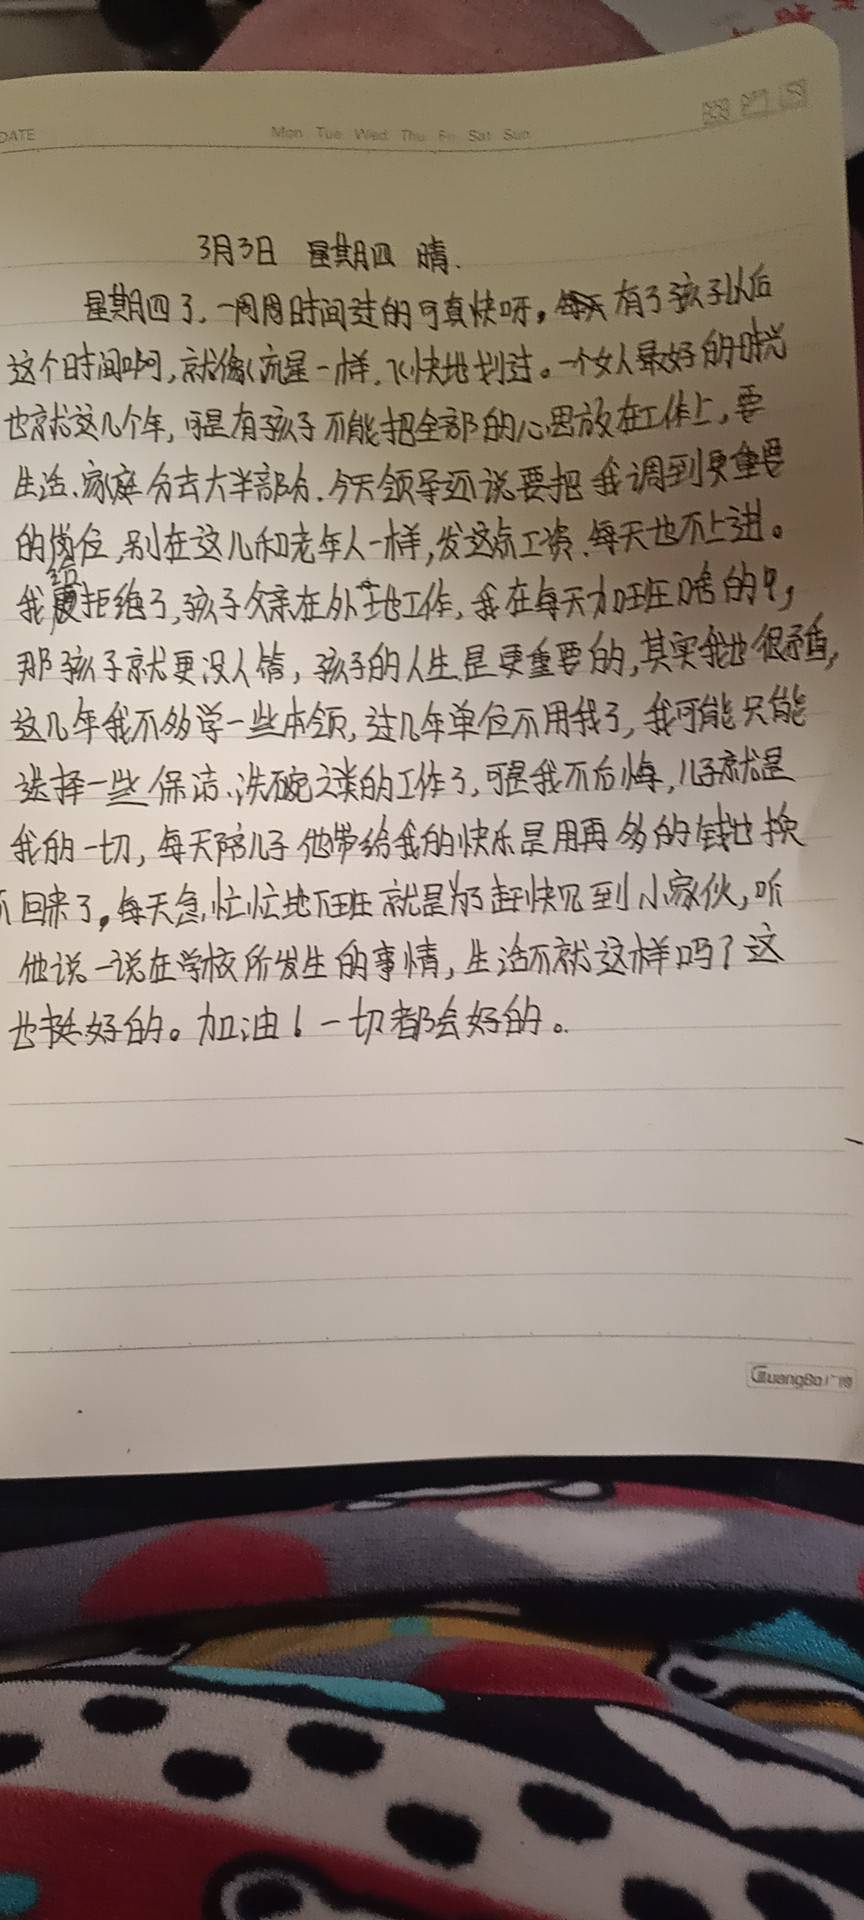 DATE
Mon Tue Wed Thu Fri Sat Sun
3月3日 星期四 晴.
星期四了,一周周时间过的可真快呀,有了孩子以后
这个时间啊,就像流星一样,飞快地划过。一个女人最好的时光
也就这几个年,可是有孩子不能把全部的心思放在工作上,要
生活、家庭分去大半部分.今天领导还说要把我调到更重要
的岗位,别在这儿和老年人一样,发这点工资.每天也不上进。
我给拒绝了,孩子父亲在外地工作,我在每天加班啥的,
那孩子就更没人管,孩子的人生是更重要的,其实我也很矛盾,
这几年我不多学一些本领,过几年单位不用我了,我可能只能
选择一些保洁、洗碗之类的工作了,可是我不后悔,儿子就是
我的一切,每天陪儿子他带给我的快乐是用再多的钱也换
不回来了,每天急忙忙地下班就是为了赶快见到小家伙,听
他说一说在学校所发生的事情,生活不就这样吗?这
也挺好的。加油!一切都会好的。
GuangBo广博